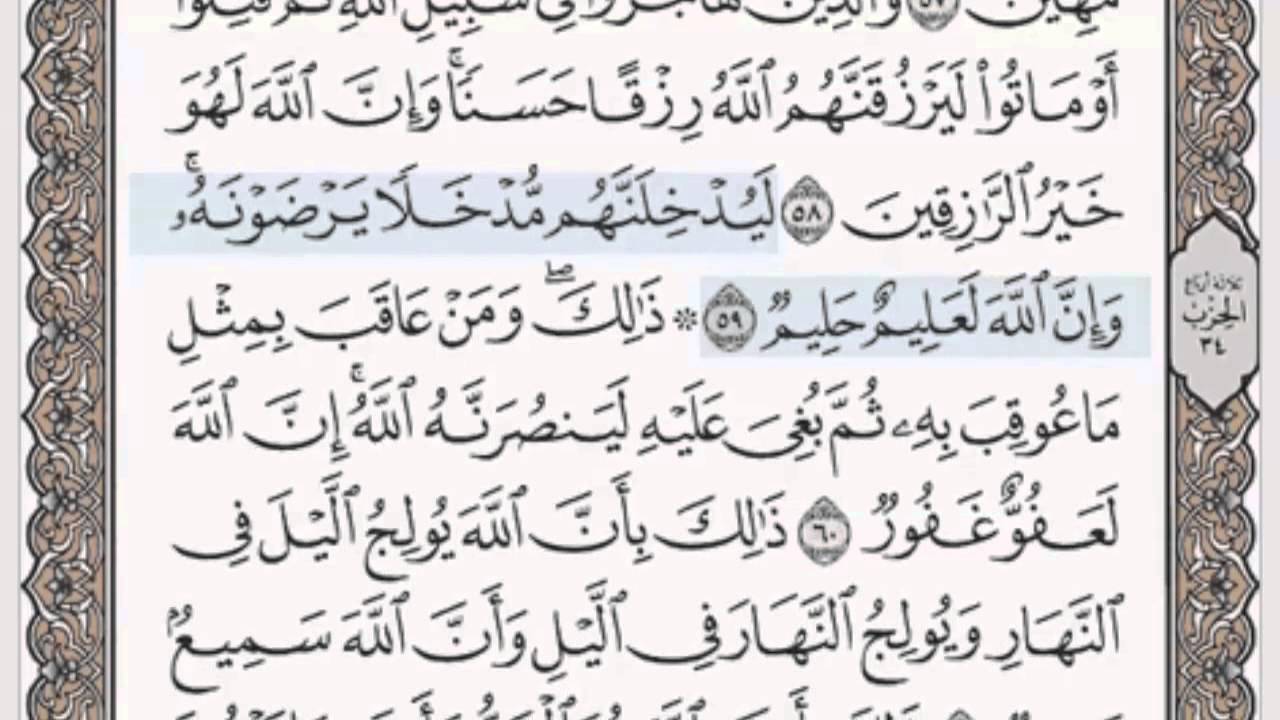 مُّهِينٌ ٥٧ وَٱلَّذِينَ هَاجَرُوا۟ فِى سَبِيلِ ٱللَّهِ ثُمَّ قُتِلُوٓا۟
أَوْ مَاتُوا۟ لَيَرْزُقَنَّهُمُ ٱللَّهُ رِزْقًا حَسَنًا ۚ وَإِنَّ ٱللَّهَ لَهُوَ
خَيْرُ ٱلرَّٰزِقِينَ ٥٨ لَيُدْخِلَنَّهُم مُّدْخَلًا يَرْضَوْنَهُۥ ۚ
وَإِنَّ ٱللَّهَ لَعَلِيمٌ حَلِيمٌ ٥٩ ۞ ذَٰلِكَ ۖ وَمَنْ عَاقَبَ بِمِثْلِ
مَا عُوقِبَ بِهِۦ ثُمَّ بُغِىَ عَلَيْهِ لَيَنصُرَنَّهُ ٱللَّهُ ۚ إِنَّ ٱللَّهَ
لَعَفُوٌّ غَفُورٌ ٦٠ ذَٰلِكَ بِأَنَّ ٱللَّهَ يُولِجُ ٱلَّيْلَ فِى
ٱلنَّهَارِ وَيُولِجُ ٱلنَّهَارَ فِى ٱلَّيْلِ وَأَنَّ ٱللَّهَ سَمِيعٌۢ
ثلاثة أرباع
الحزب
٣٤